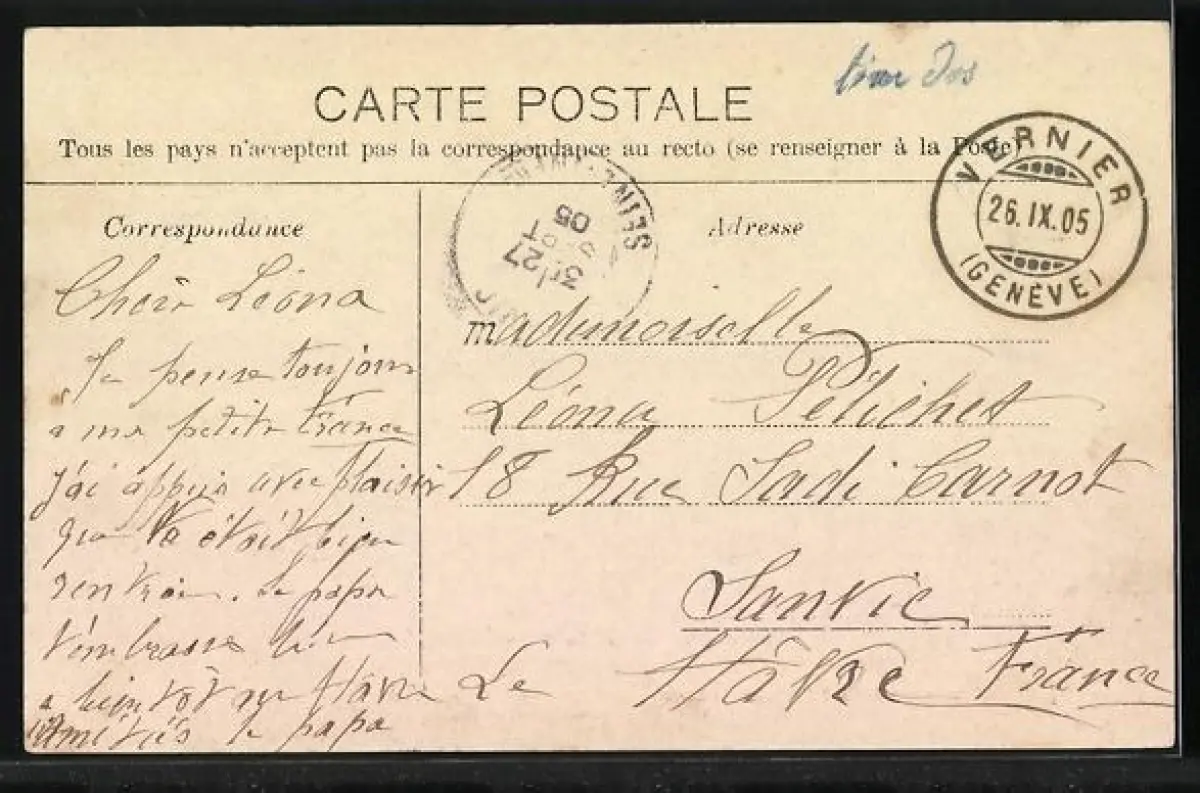 timbre Dos
CARTE POSTALE
Tous les pays n'acceptent pas la correspondance au recto (se renseigner à la Poste)
VERNIER
26.IX.05
(GENÈVE)
SEINE
27
SEPT
05
Correspondance
Adresse
Chèr Léona
Je pense toujour
a ma petite France
j'ai appris avec plaisir
que tu était bien
rentrée. Le papa
t'embrasse bien
a bientôt au Hâvre
Amitiés le papa
mademoiselle
Léona Pétichet
18 Rue Sadi Carnot
Sanvic
Le Hâvre France